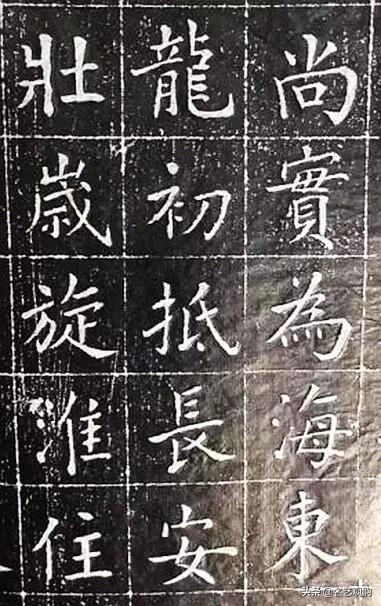 尚實為海東
龍初抵長安
壯歲旋淮住
头条@名艺观韵